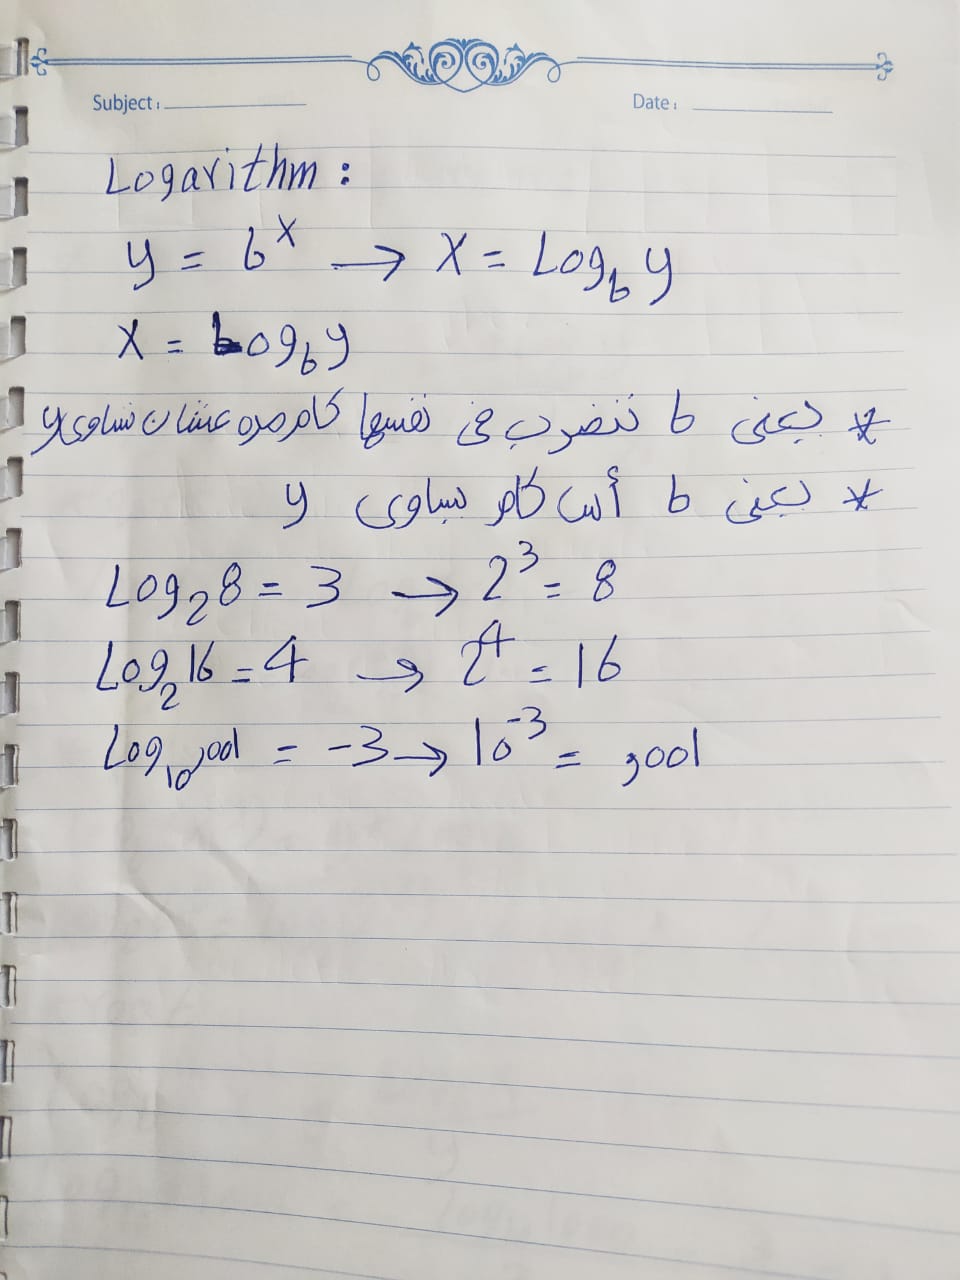 Subject: Date:
Logarithm :
y = b^x → x = Log_b y
x = Log_b y
* يعنى b تتضرب فى نفسها كام مره عشان تساوى y
* يعنى b أس كام يساوى y
Log_2 8 = 3 → 2^3 = 8
Log_2 16 = 4 → 2^4 = 16
Log_10 ,001 = -3 → 10^-3 = ,001